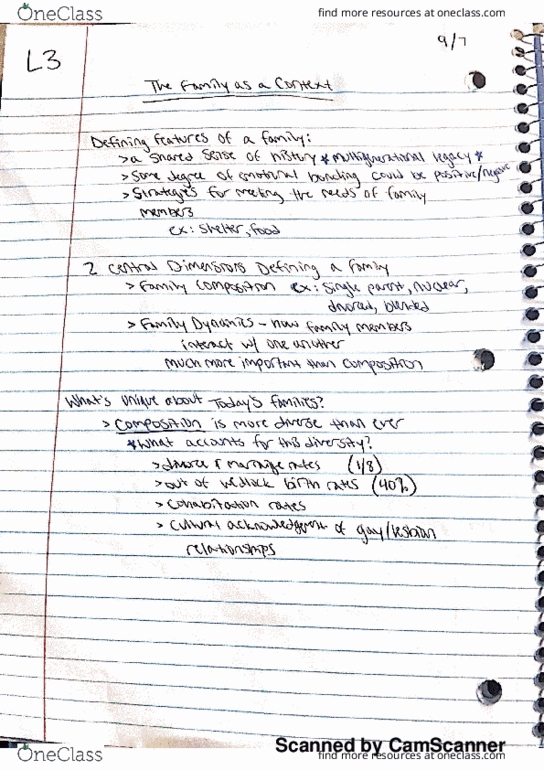 OneClass
find more resources at oneclass.com
9/7
L3
The Family as a Context
Defining features of a family:
> a shared sense of history *multigenerational legacy*
> Some degree of emotional bonding could be positive/negative
> Strategies for meeting the needs of family
members
ex: shelter, food
2 Central Dimensions Defining a family
> Family Composition ex: single parent, nuclear,
divorced, blended
> Family Dynamics - how family members
interact w/ one another
much more important than composition
What's unique about Today's families?
> Composition is more diverse than ever
*What accounts for this diversity?
> divorce & marriage rates (1/3)
> out of wedlock birth rates (40%)
> Cohabitation rates
> Cultural acknowledgment of gay/lesbian
relationships
Scanned by CamScanner
OneClass
find more resources at oneclass.com